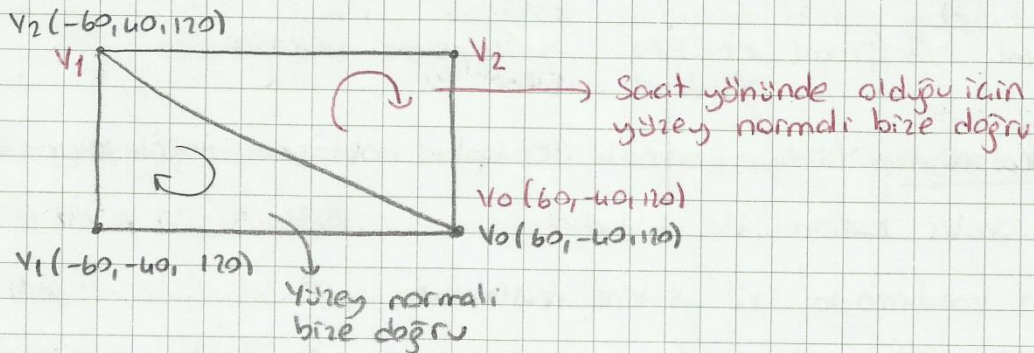 V2(-60,40,120)
V1
V2
Saat yönünde olduğu için
yüzey normali bize doğru
V0(60,-40,120)
V0(60,-40,120)
V1(-60,-40, 120)
Yüzey normali
bize doğru